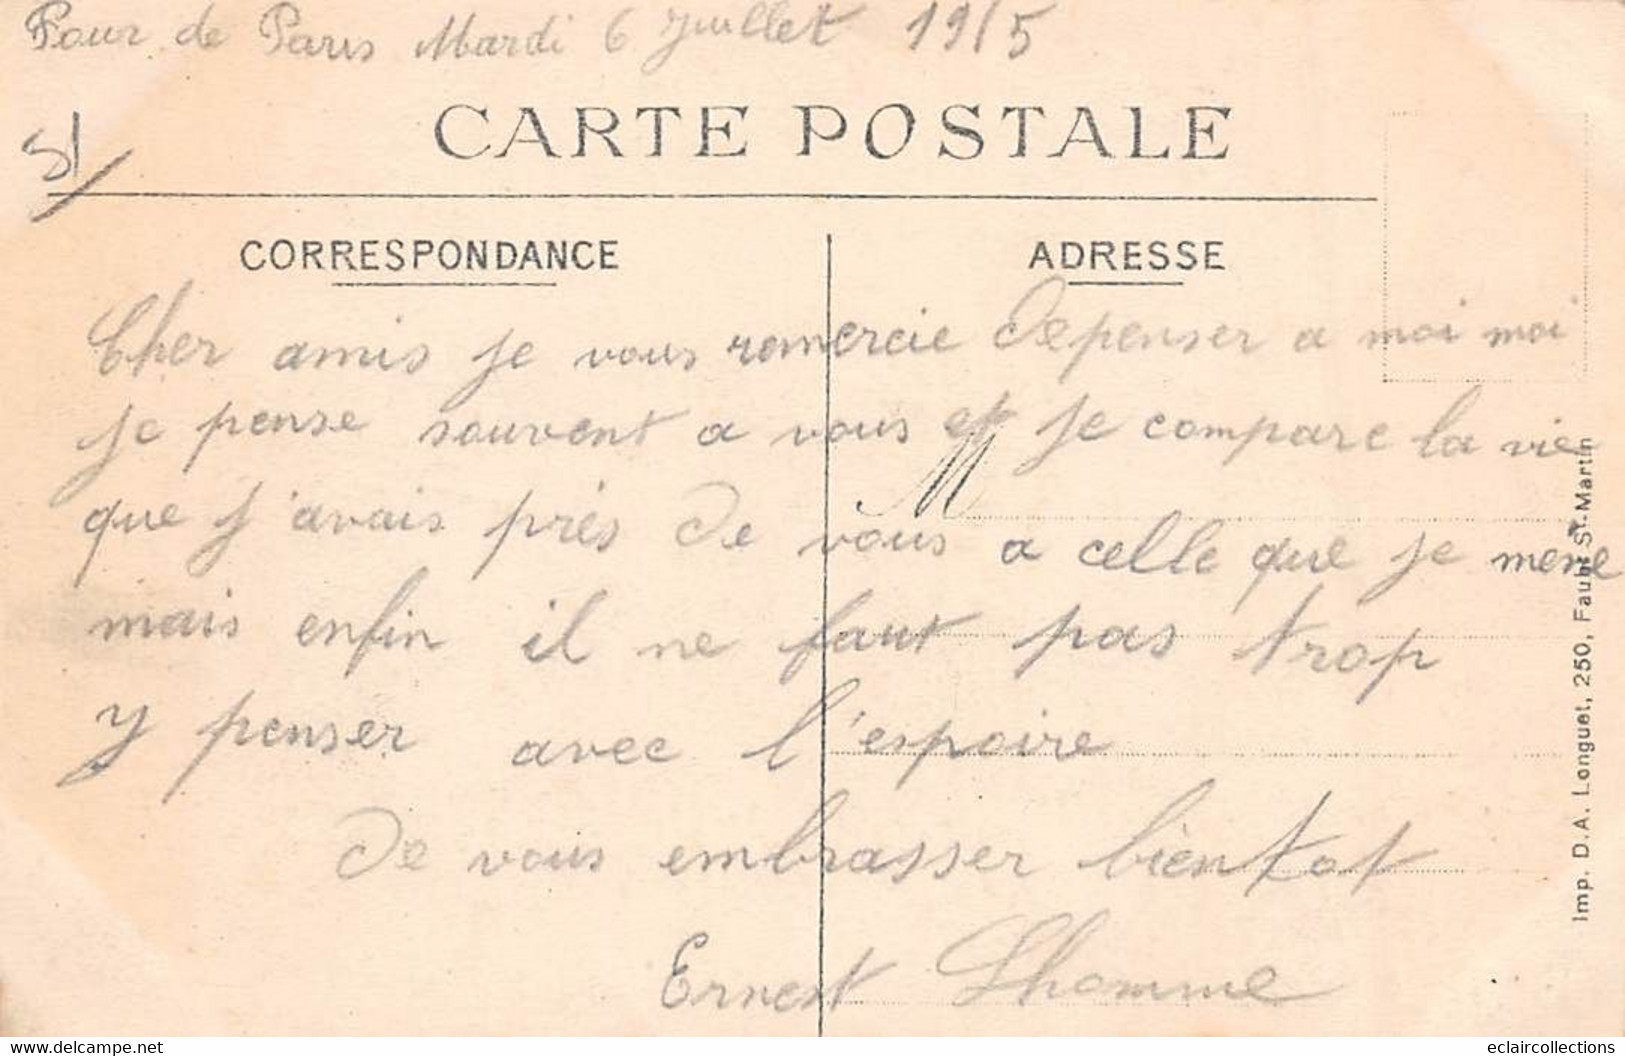 Four de Paris Mardi 6 Juillet 1915
CARTE POSTALE
51
CORRESPONDANCE
ADRESSE
Cher amis je vous romercie de penser a moi moi
je pense souvent a vous et je compare la vie
M
que j'avais près de vous a celle que je mene
mais enfin il ne faut pas trop
y penser avec l'espoire
de vous embrasser bientot
Ernest Lhomme
Imp. D.A. Longuet, 250, Faubg St-Martin
delcampe.net
eclaircollections